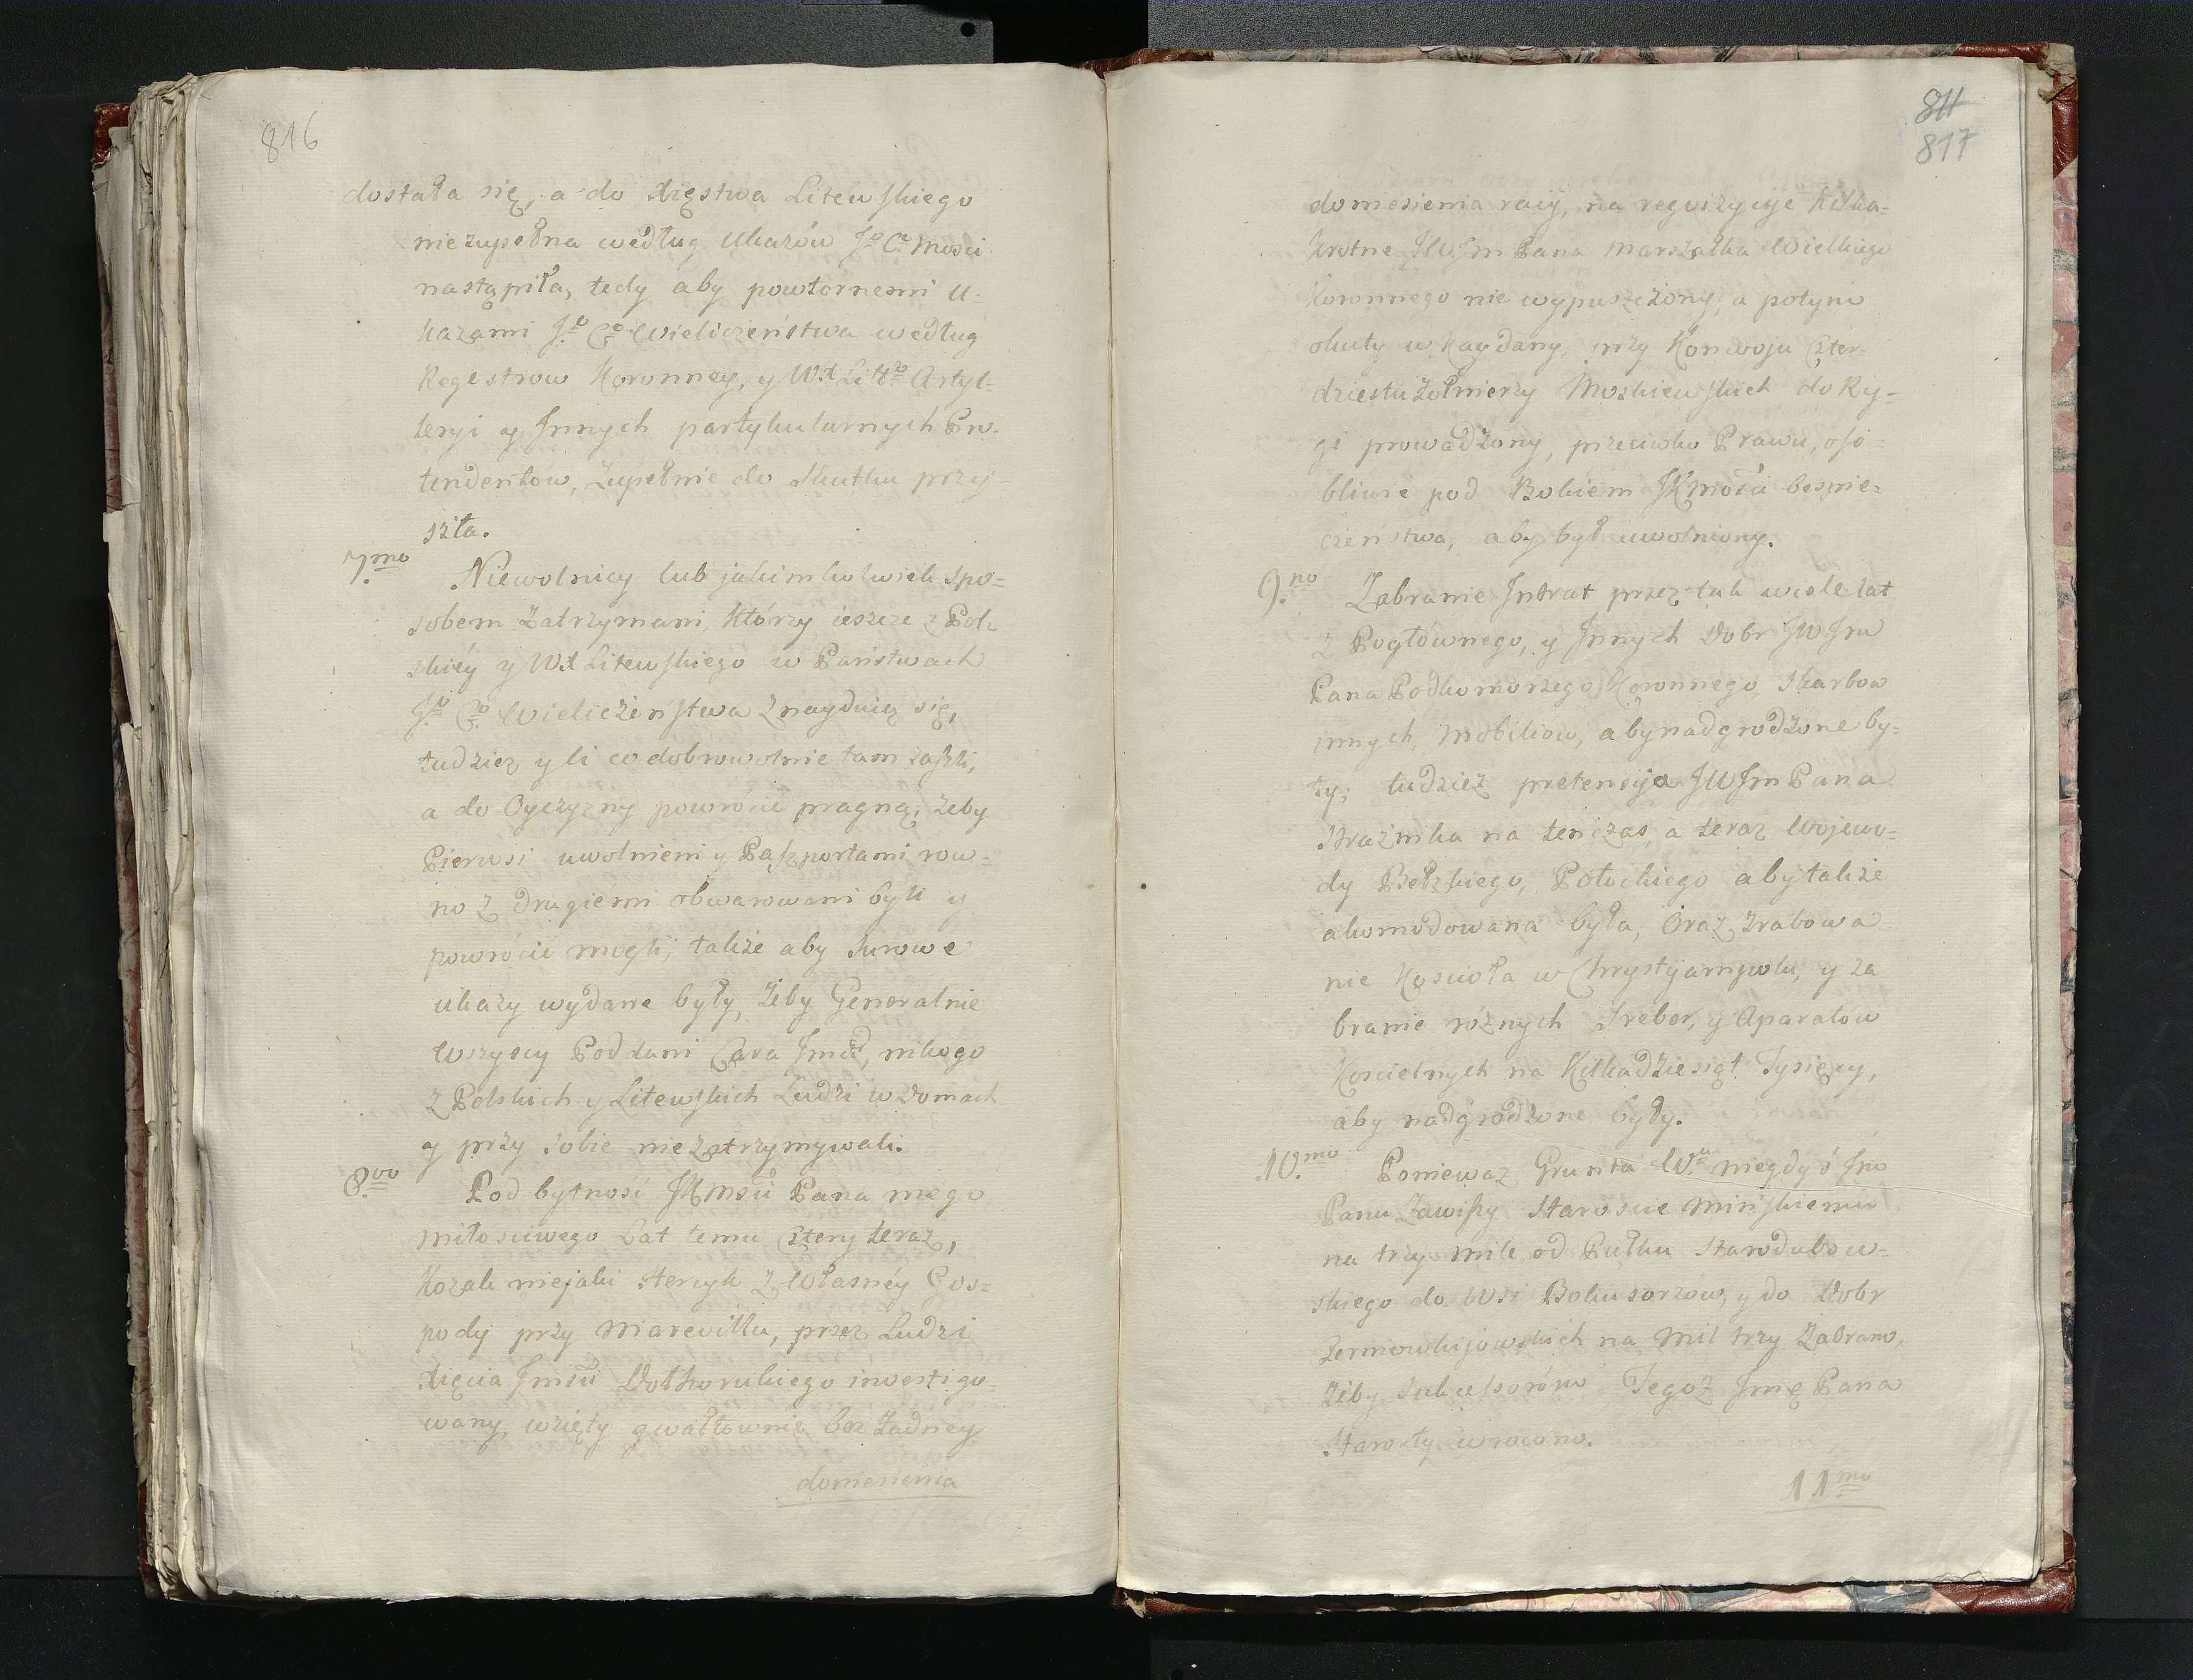 816
dostała się, a do Xięstwa Litewskiego
niezupełna według Ukazów Jo Ca Mości
nastąpiła, tedy aby powtornemi U-
kazami Jo Co Wieliczeństwa według
Regestrow Koronney, y W.X. Litgo Artyl-
leryi y Innych partykularnych Pre-
tendentów, zupełnie do skutku przy-
szła.
7.mo Niewolnicy lub jakimkolwiek spo-
sobem zatrzymani, którzy ieszcze z Pol-
skiéy y WX Litewskiego w Państwach
Jo Co Wieliczeństwa znayduią się,
tudziez y ci co dobrowolnie tam zaszli,
a do Oyczyzny powrócić pragną, żeby
Pierwsi uwolnieni y Paszportami row-
no z drugiemi obwarowani byli y
powrócić mogli, także aby surowe
ukazy wydane były, żeby Generalnie
wszyscy Poddani Cara Jmci, nikogo
z Polskich y Litewskich Ludzi w Domach
y przy sobie nie zatrzymywali.
8.vo Pod bytność JKmści Pana mego
miłosciwego Lat temu Cztery teraz,
Kozak niejaki Hercyk z własnéy Gos-
pody przy Marevillu, przez Ludzi
Xięcia Jmści Dołhorukiego investigo-
wany, wzięty gwałtownie bez żadney
doniesienia
811
817
doniesienia racij, na reqvizycije kilka-
krotne JWJm Pana Marszałka Wielkiego
Koronnego nie wypuszczony, a potym
okuty w Kaydany, przy Konwoju Czter-
dziestu żołnierzy Moskiewskich do Ry-
gi prowadzony, przeciwko Prawu, oso-
bliwie pod Bokiem JKmości bespie-
czeństwa, aby był uwolniony.
9.no Zabranie Intrat przez tak wiele lat
z Pogłównego, y Innych Dobr JWJm
Pana Podkomorzego Koronnego, Skarbow
innych, mobiliow, aby nadgrodzone by-
ły; tudzież pretensija JWJm Pana
Strażnika na tenczas, a teraz Wojewo-
dy Bełzkiego, Potockiego aby także
akomodowana była, Oraz zrabowa
nie Koscioła w Chrystyampolu, y za
branie róznych Sreber, y Aparatow
Koscielnych na Kilkadziesiąt Tysięcy,
aby nadgrodzone były.
10.mo Poniewaz Grunta W.u niegdyś Jm
Panu Zawiszy Staroscie Mińskiemu
na trzy mile od Pułku Starodubow-
skiego do Wsi Bohusorzow, y do Dobr
na mil trzy zabrano,
żeby Sukcessorom Tegoż Jmę Pana
Starosty wrocono.
11mo